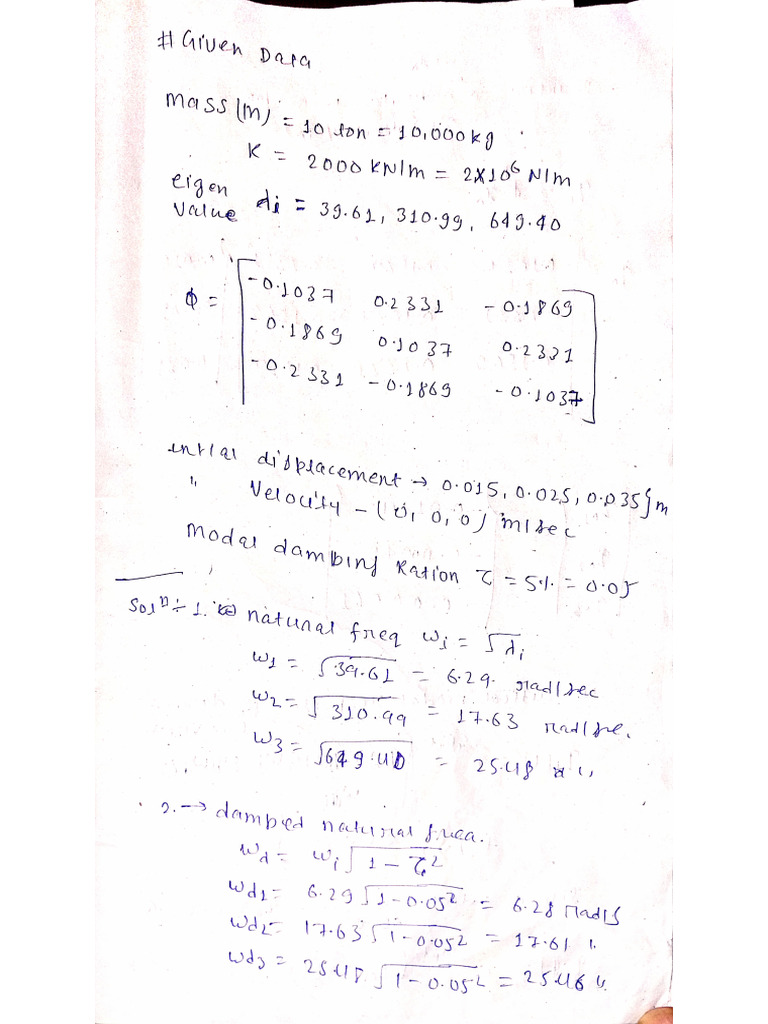 # Given Data
Mass (m) = 10 ton = 10,000 kg
K = 2000 KN/m = 2×10⁶ N/m
eigen value di = 39.61, 310.99, 649.40
ϕ = [ -0.1037 0.2331 -0.1869
-0.1869 0.1037 0.2331
-0.2331 -0.1869 -0.1037 ]
initial displacement → 0.015, 0.025, 0.035} m
" Velocity - (0, 0, 0) m/sec
Modal damping Ration ζ = 5% = 0.05
Solⁿ ÷ 1. natural freq ωi = √λi
ω1 = √39.61 = 6.29 rad/sec
ω2 = √310.99 = 17.63 rad/se.
ω3 = √649.40 = 25.48 "
2. → damped natural frea.
ωd = ωi √1 - ζ²
ωd1 = 6.29 √1 - 0.05² = 6.28 rad/s
ωd2 = 17.63 √1 - 0.05² = 17.61 "
ωd3 = 25.48 √1 - 0.05² = 25.46 "